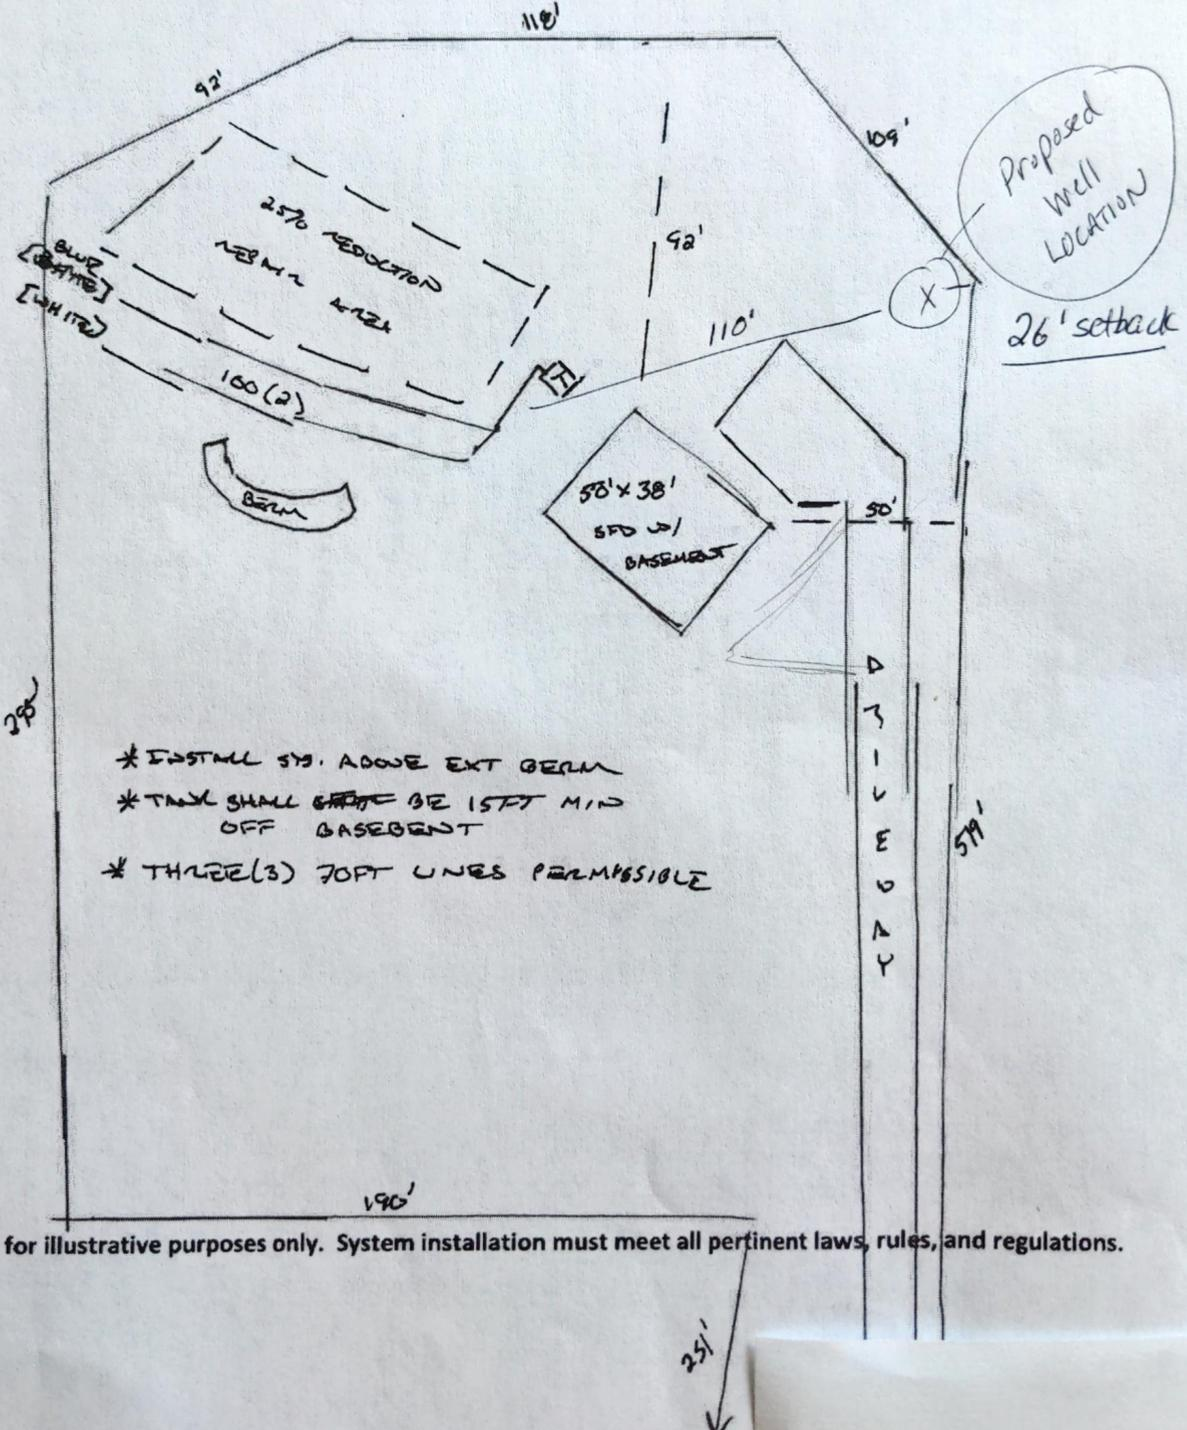 118'
92'
109'
Proposed
Well
LOCATION
25% REDUCTION
REPAIR AREA
92'
BLUE
[WHITE]
X
110'
26' setback
100(2)
T
BERM
50'X 38'
SFD W/
BASEMENT
50'
DRIVEWAY
* INSTALL SYS. ABOVE EXT BERM
* TANK SHALL BE 15FT MIN
OFF BASEBENT
* THREE(3) 70FT LINES PERMISSIBLE
519'
190'
for illustrative purposes only. System installation must meet all pertinent laws, rules, and regulations.
251'